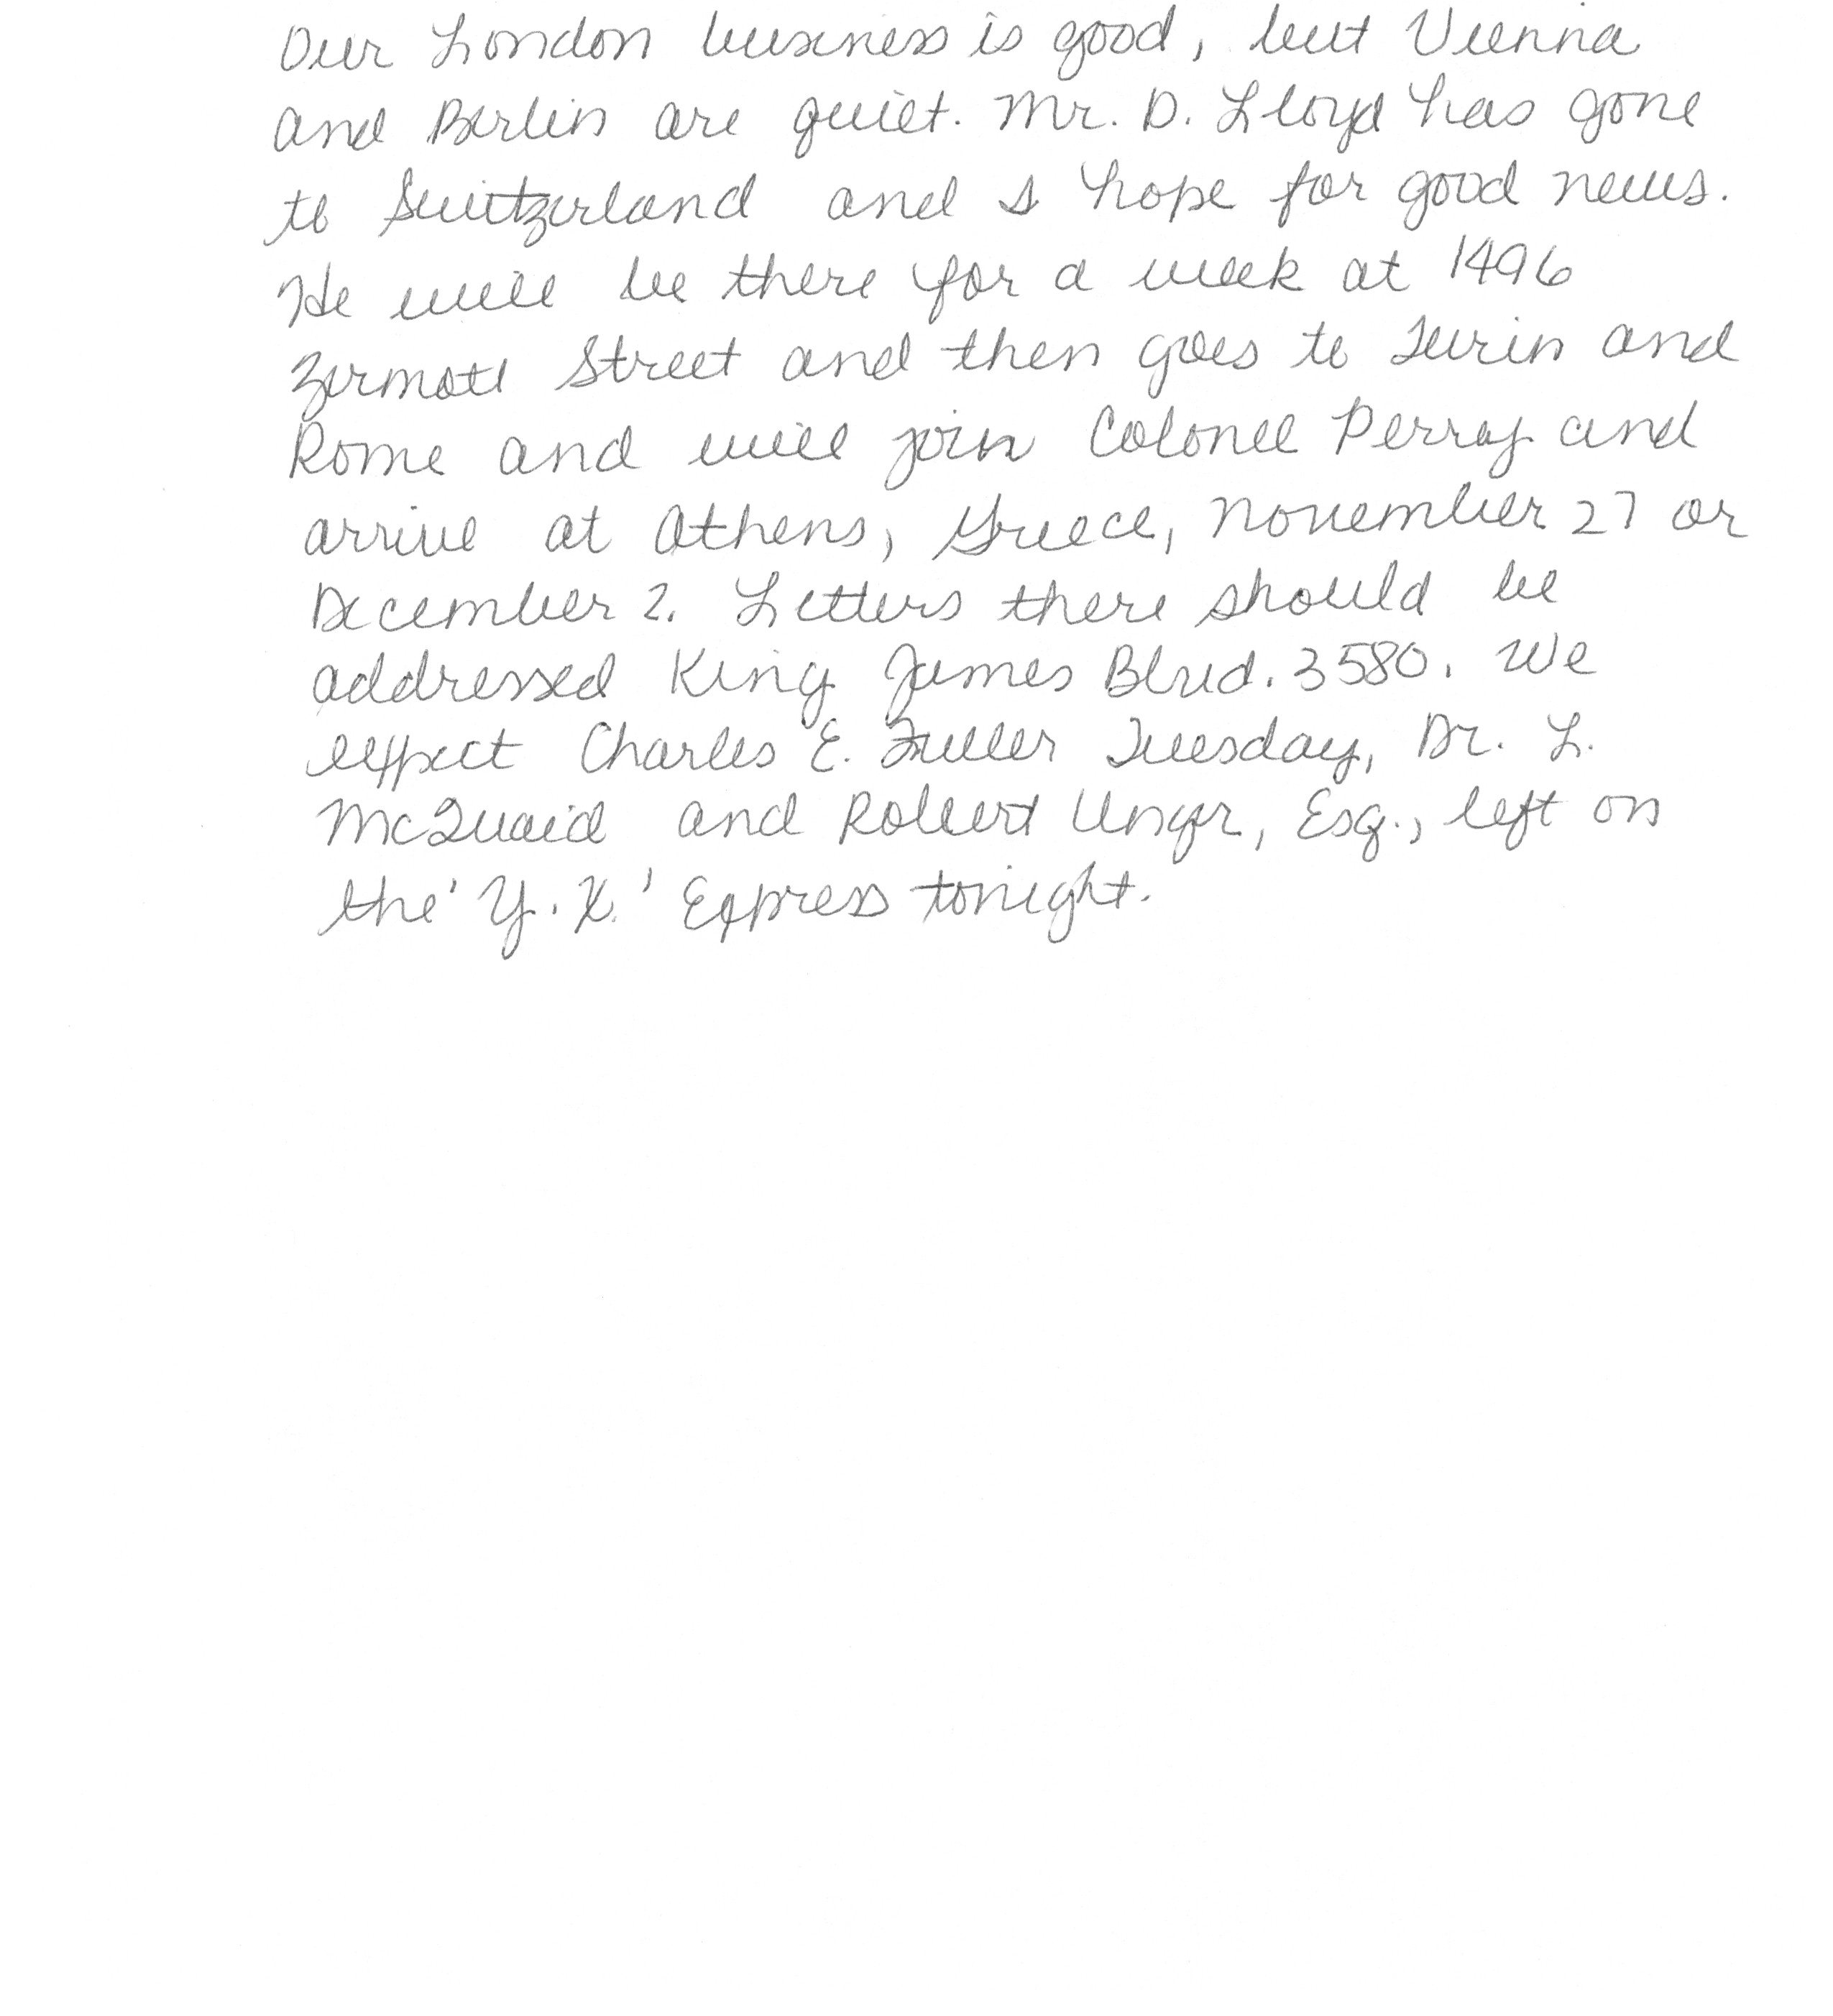 Our London business is good, but Vienna
and Berlin are quiet. Mr. D. Lloyd has gone
to Switzerland and I hope for good news.
He will be there for a week at 1496
Zermott Street and then goes to Turin and
Rome and will join Colonel Perry and
arrive at Athens, Greece, November 27 or
December 2. Letters there should be
addressed King James Blvd. 3580. We
expect Charles E. Fuller Tuesday, Dr. L.
McQuaid and Robert Unger, Esq., left on
the 'Y. X.' Express tonight.